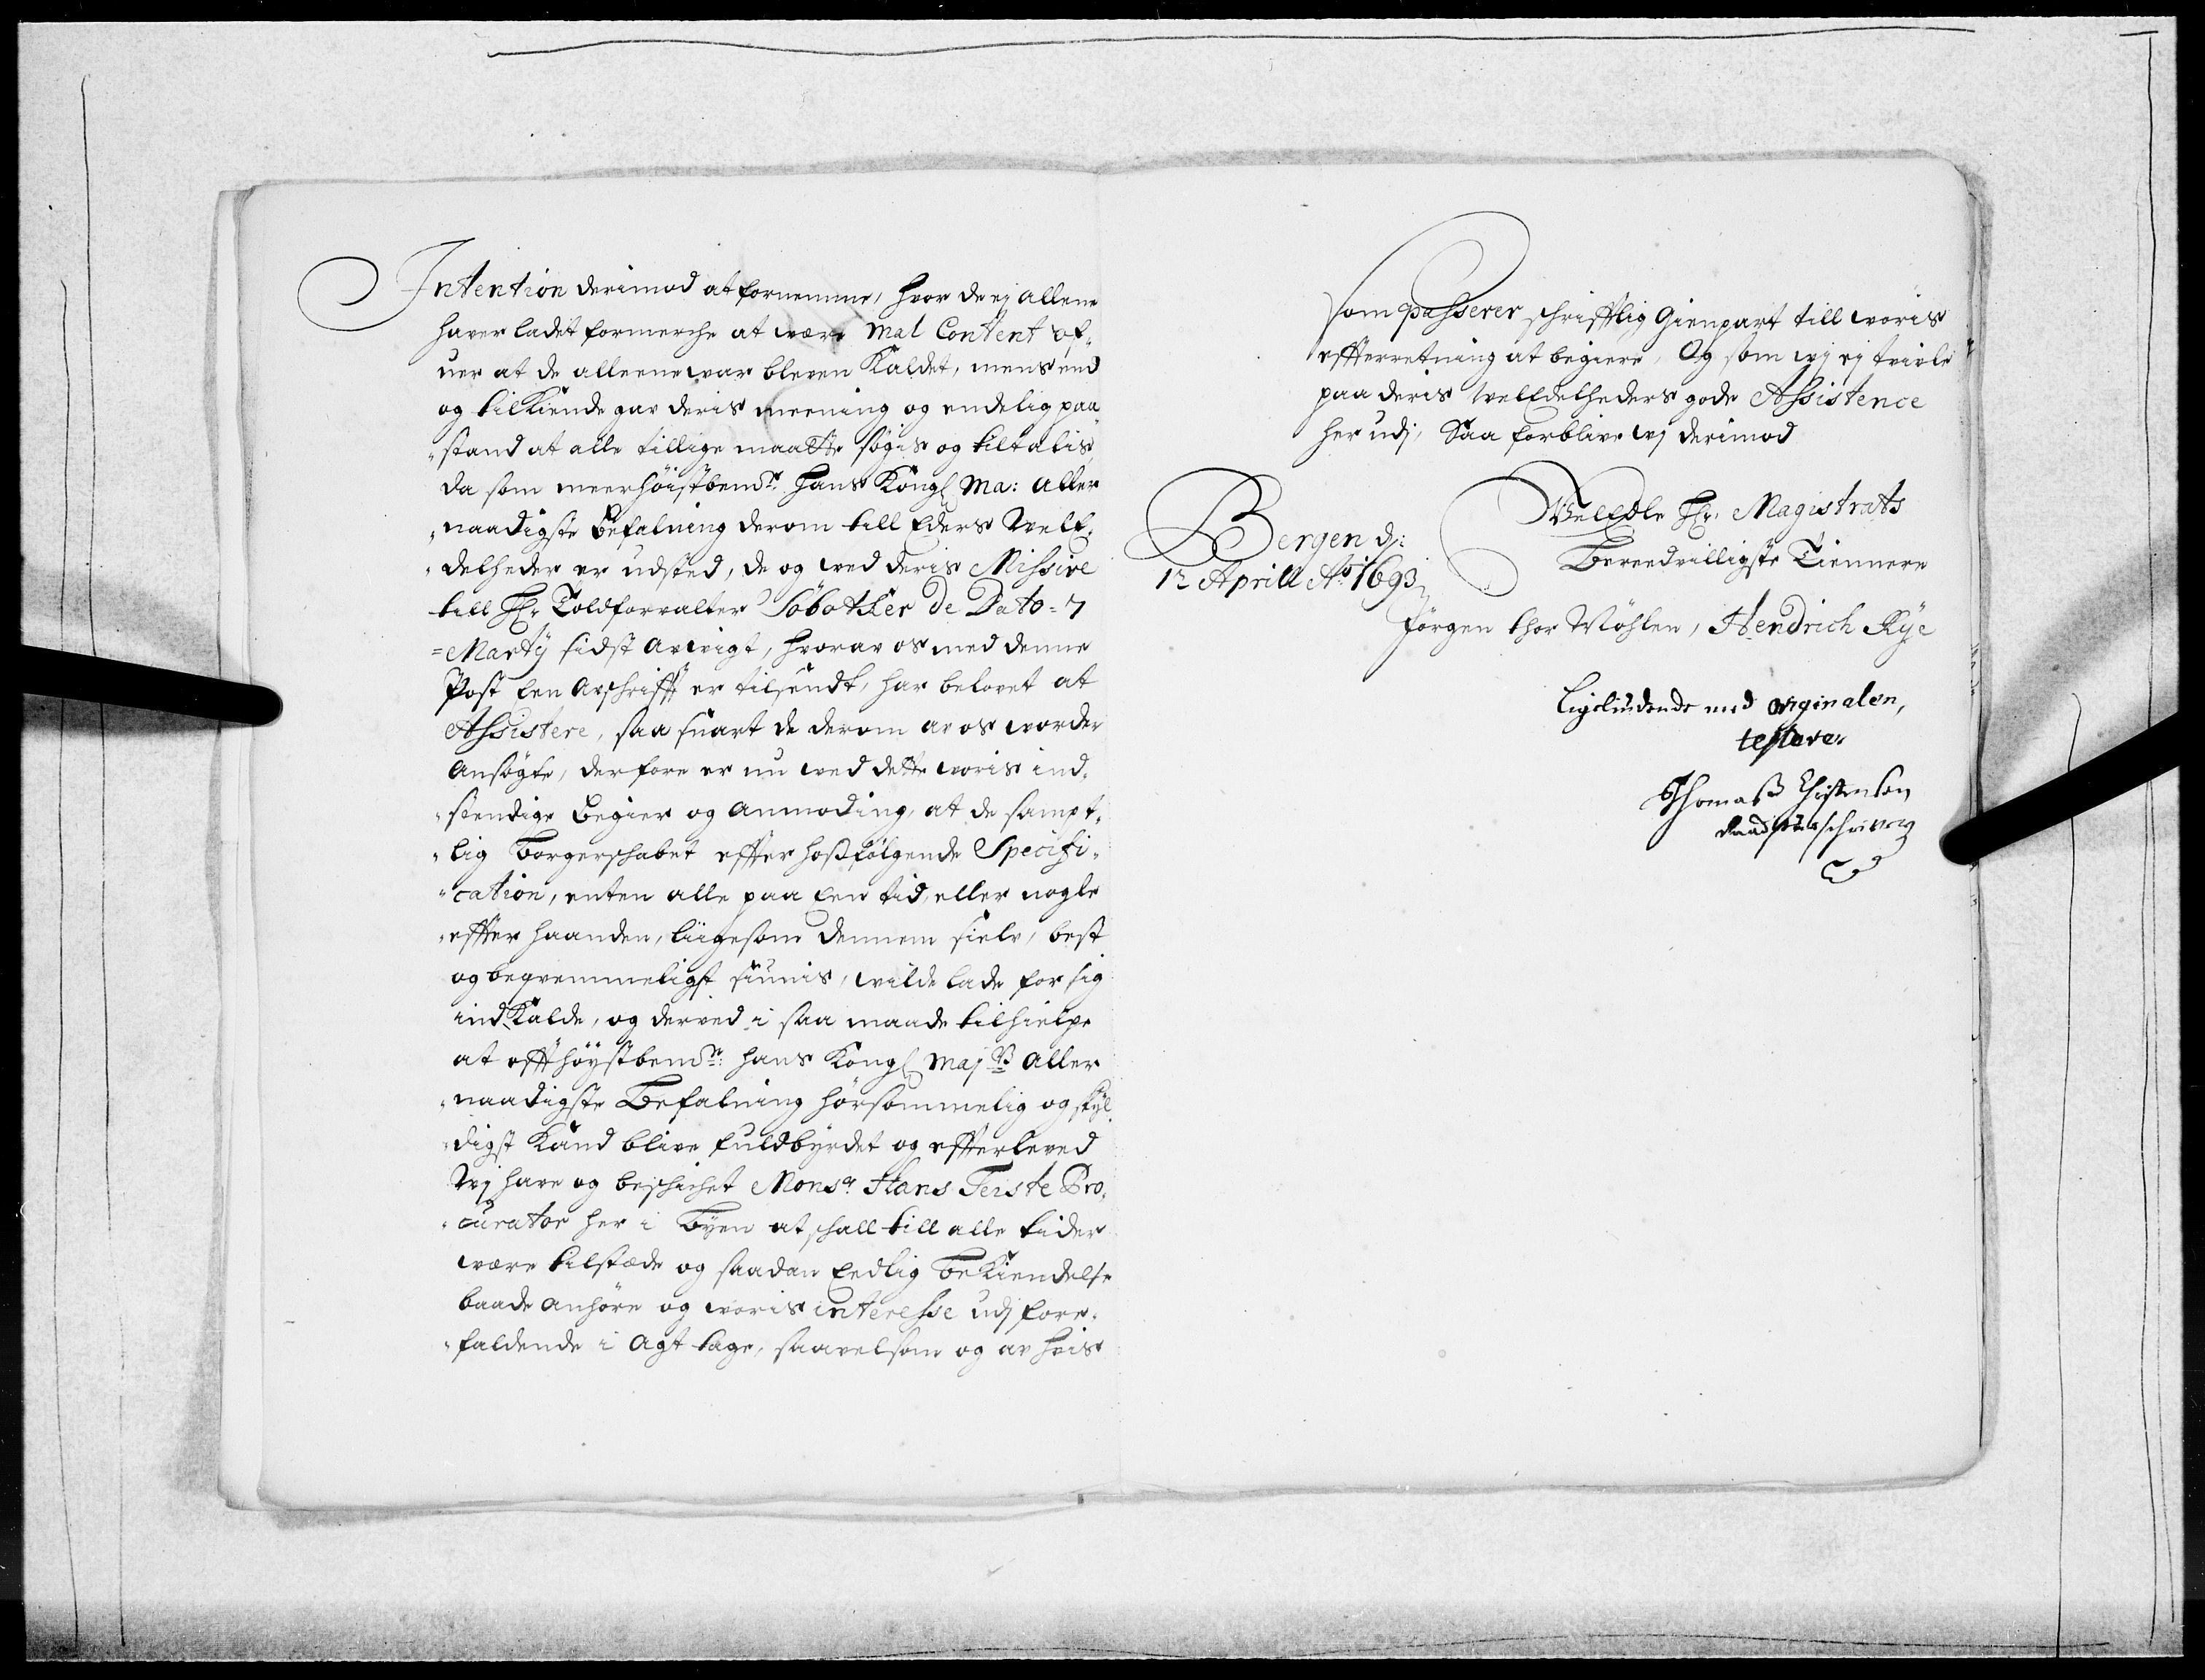 Intention derimod at fornemme, hvor de ej allene
haver ladet formerche at være Mal Content of-
uer at de alleene war bleven Kaldet, mens end
og tilKiende gav deris meening og endelig paa
stand at alle tillige maatte søgis og tiltalis
da som meerhøistbemte: Hans Kongl Ma: Aller
naadigste Befalning derom till Eders WelE-
delheder er udsted, de og wed deris Missive
till Hr Toldforvalter Søbøtker de Dato = 7
= Marty sidst avvigt, hvorav os med denne
Post Een Avschrifft er tilsendt, har belovet at
Assistere, saa snart de derom av os worder
Ansøgte, derfore er nu wed dette woris ind-
stendige Begier og Anmoding, at de sampt-
lig Borgerschabet effter hosfølgende Specifi-
cation, enten alle paa Een tid, eller nogle
effter haanden, liigesom dennem sielv, best
og beqvemmeligst siunis, wilde lade for sig
indKalde, og derved i saa maade tilhielpe
at offthøystbemte: hans Kongl Majts Aller
naadigste Befalning hørsommelig og skyl
digst Kand blive fuldbyrdet og effterleved
Wj have og beschichet Monsr Hans Teiste Pro-
curator her i Byen at schall till alle tider
være tilstæde og saadan Eedlig BeKiendelse
baade anhøre og woris interesse udj fore-
faldende i Agt tage, saavelsom og av hvis
som passerer schrifftlig Gienpart till woris
effterretning at begiere, Og som wj ej tvivle
paa deris WelEdelheders gode Assistence
her udj, Saa forblive wj derimod
WelEdle Hr. Magistrats
Bereedvilligste Tiennere
Bergen d:
12 Aprill Ao 1693
Jørgen thor Møhlen, Hendrich Rye
Ligeliudende med orginalen,
testerer
Thomas Christensøn
Raadstueschriver